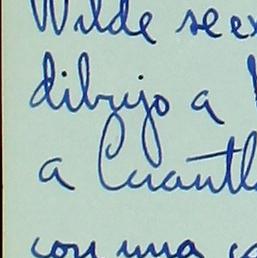 Wilde se ex
dibujo a
a Cuautl
con una ca